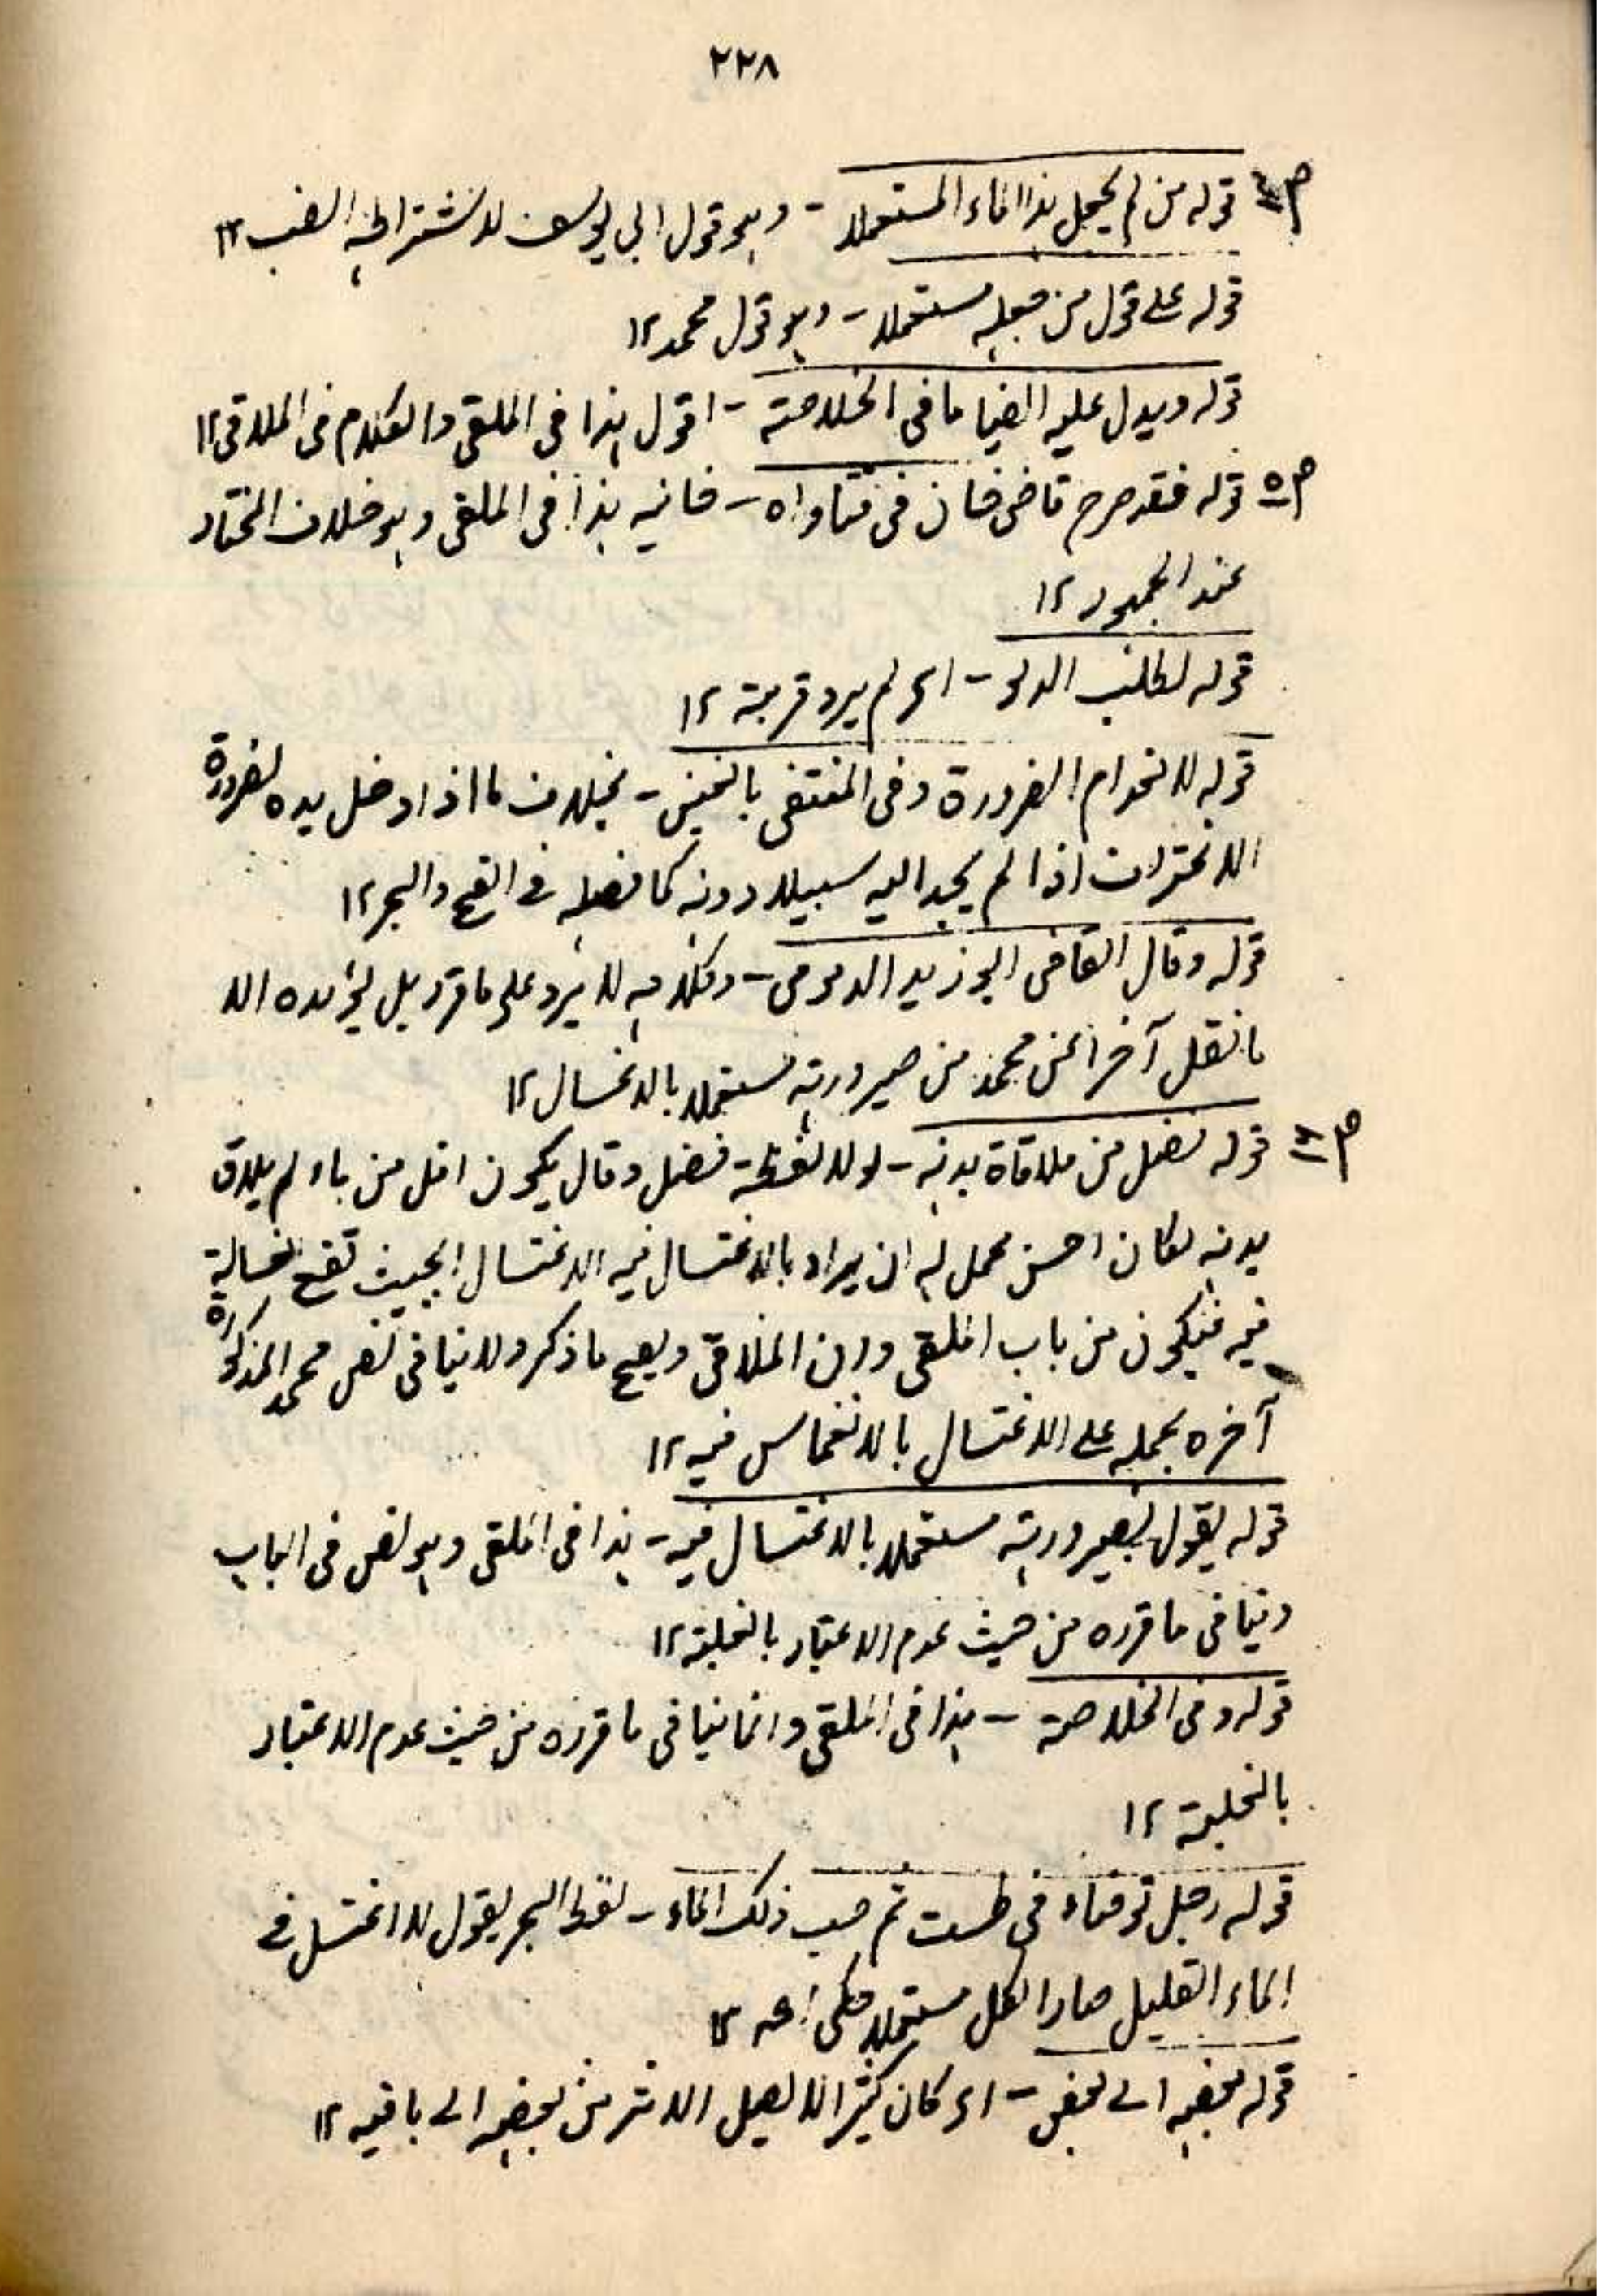 ٢٢٨
قوله من لم يجعل هذا الماء المستعملا - وهو قول ابي يوسف لاشتراطه الصب ١٢
قوله على قول من جعله مستعملا - وهو قول محمد ١٢
قوله ويدل عليه ايضا ما فى الخلاصة - اقول هذا فى الملقى والكلام فى الملاقى ١٢
ص٥ قوله فقد صرح قاضى خان فى فتاواه - خانيه هذا فى الملقى وهو خلاف المختار
عند الجمهور ١٢
قوله لطلب الدلو - اى لم يرد قربة ١٢
قوله لانعدام الضرورة وفى المنتقى بالحسن - بخلاف ما اذا ادخل يده لضرورة
الاغتراف اذا لم يجد اليه سبيلا دونه كما فصله فى الفتح والبحر ١٢
قوله وقال القاضى ابو زيد الدبوسى - وكلامه لا يرد على ما قرر بل يؤيده الا
ما نقل آخرا عن محمد من صيرورته مستعملا بالاغتسال ١٢
قوله فضل من ملاقاة بدنه - لولا لفظة فضل وقال يكون اقل من ماء لم يلاق
بدنه لكان احسن محمل له ان يراد بالاغتسال فيه الاغتسال بحيث تقع الغسالة
فيه فيكون من باب الملقى دون الملاقى ويصح ما ذكر ولا ينافى نص محمد المذكورة
آخره بحمله على الاغتسال بالانغماس فيه ١٢
قوله يقول بصيرورته مستعملا بالاغتسال فيه - هذا فى الملقى وهو نص فى الباب
وينافى ما قرره من حيث عدم الاعتبار بالغلبة ١٢
قوله وفى الخلاصة - هذا فى الملقى وانما ينافى ما قرره من حيث عدم الاعتبار
بالغلبة ١٢
قوله رجل توضاء فى طست ثم صب ذلك الماء - لفظ البحر يقول لو اغتسل فى
الماء القليل صار الكل مستعملا حكما اھ ١٢
قوله بعضه الى بعض - اى كان كثيرا لا يصل الاثر من بعضه الى باقيه ١٢